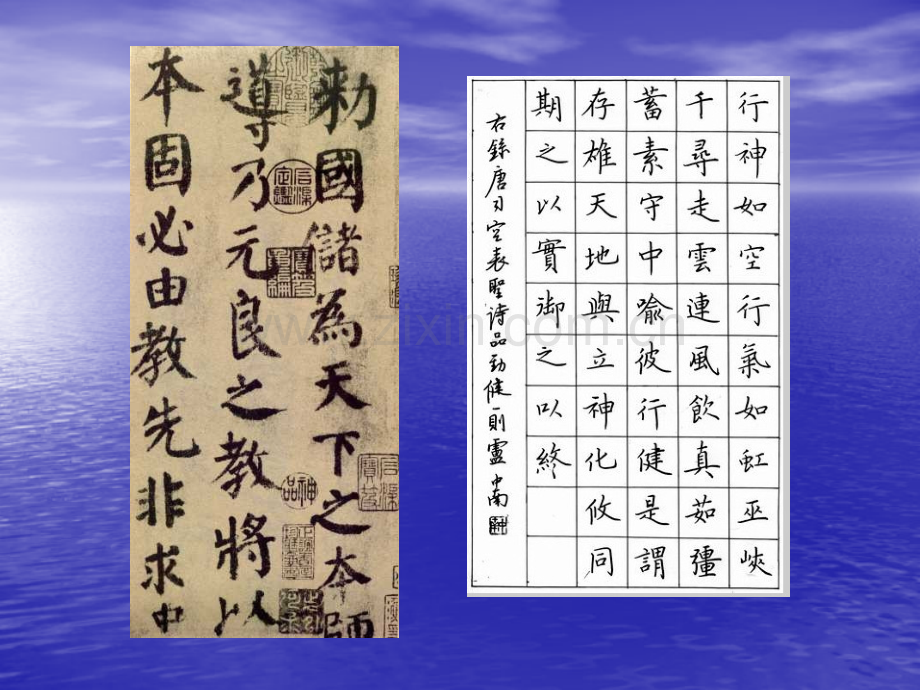 勑國儲為天下之本師
導乃元良之教將以
本固必由教先非求中
行神如空行氣如虹巫峽
千尋走雲連風飲真茹彊
蓄素守中喻彼行健是謂
存雄天地與立神化攸同
期之以實御之以終
右錄唐司空表聖詩品勁健一則盧中南
www.zixin.com.cn